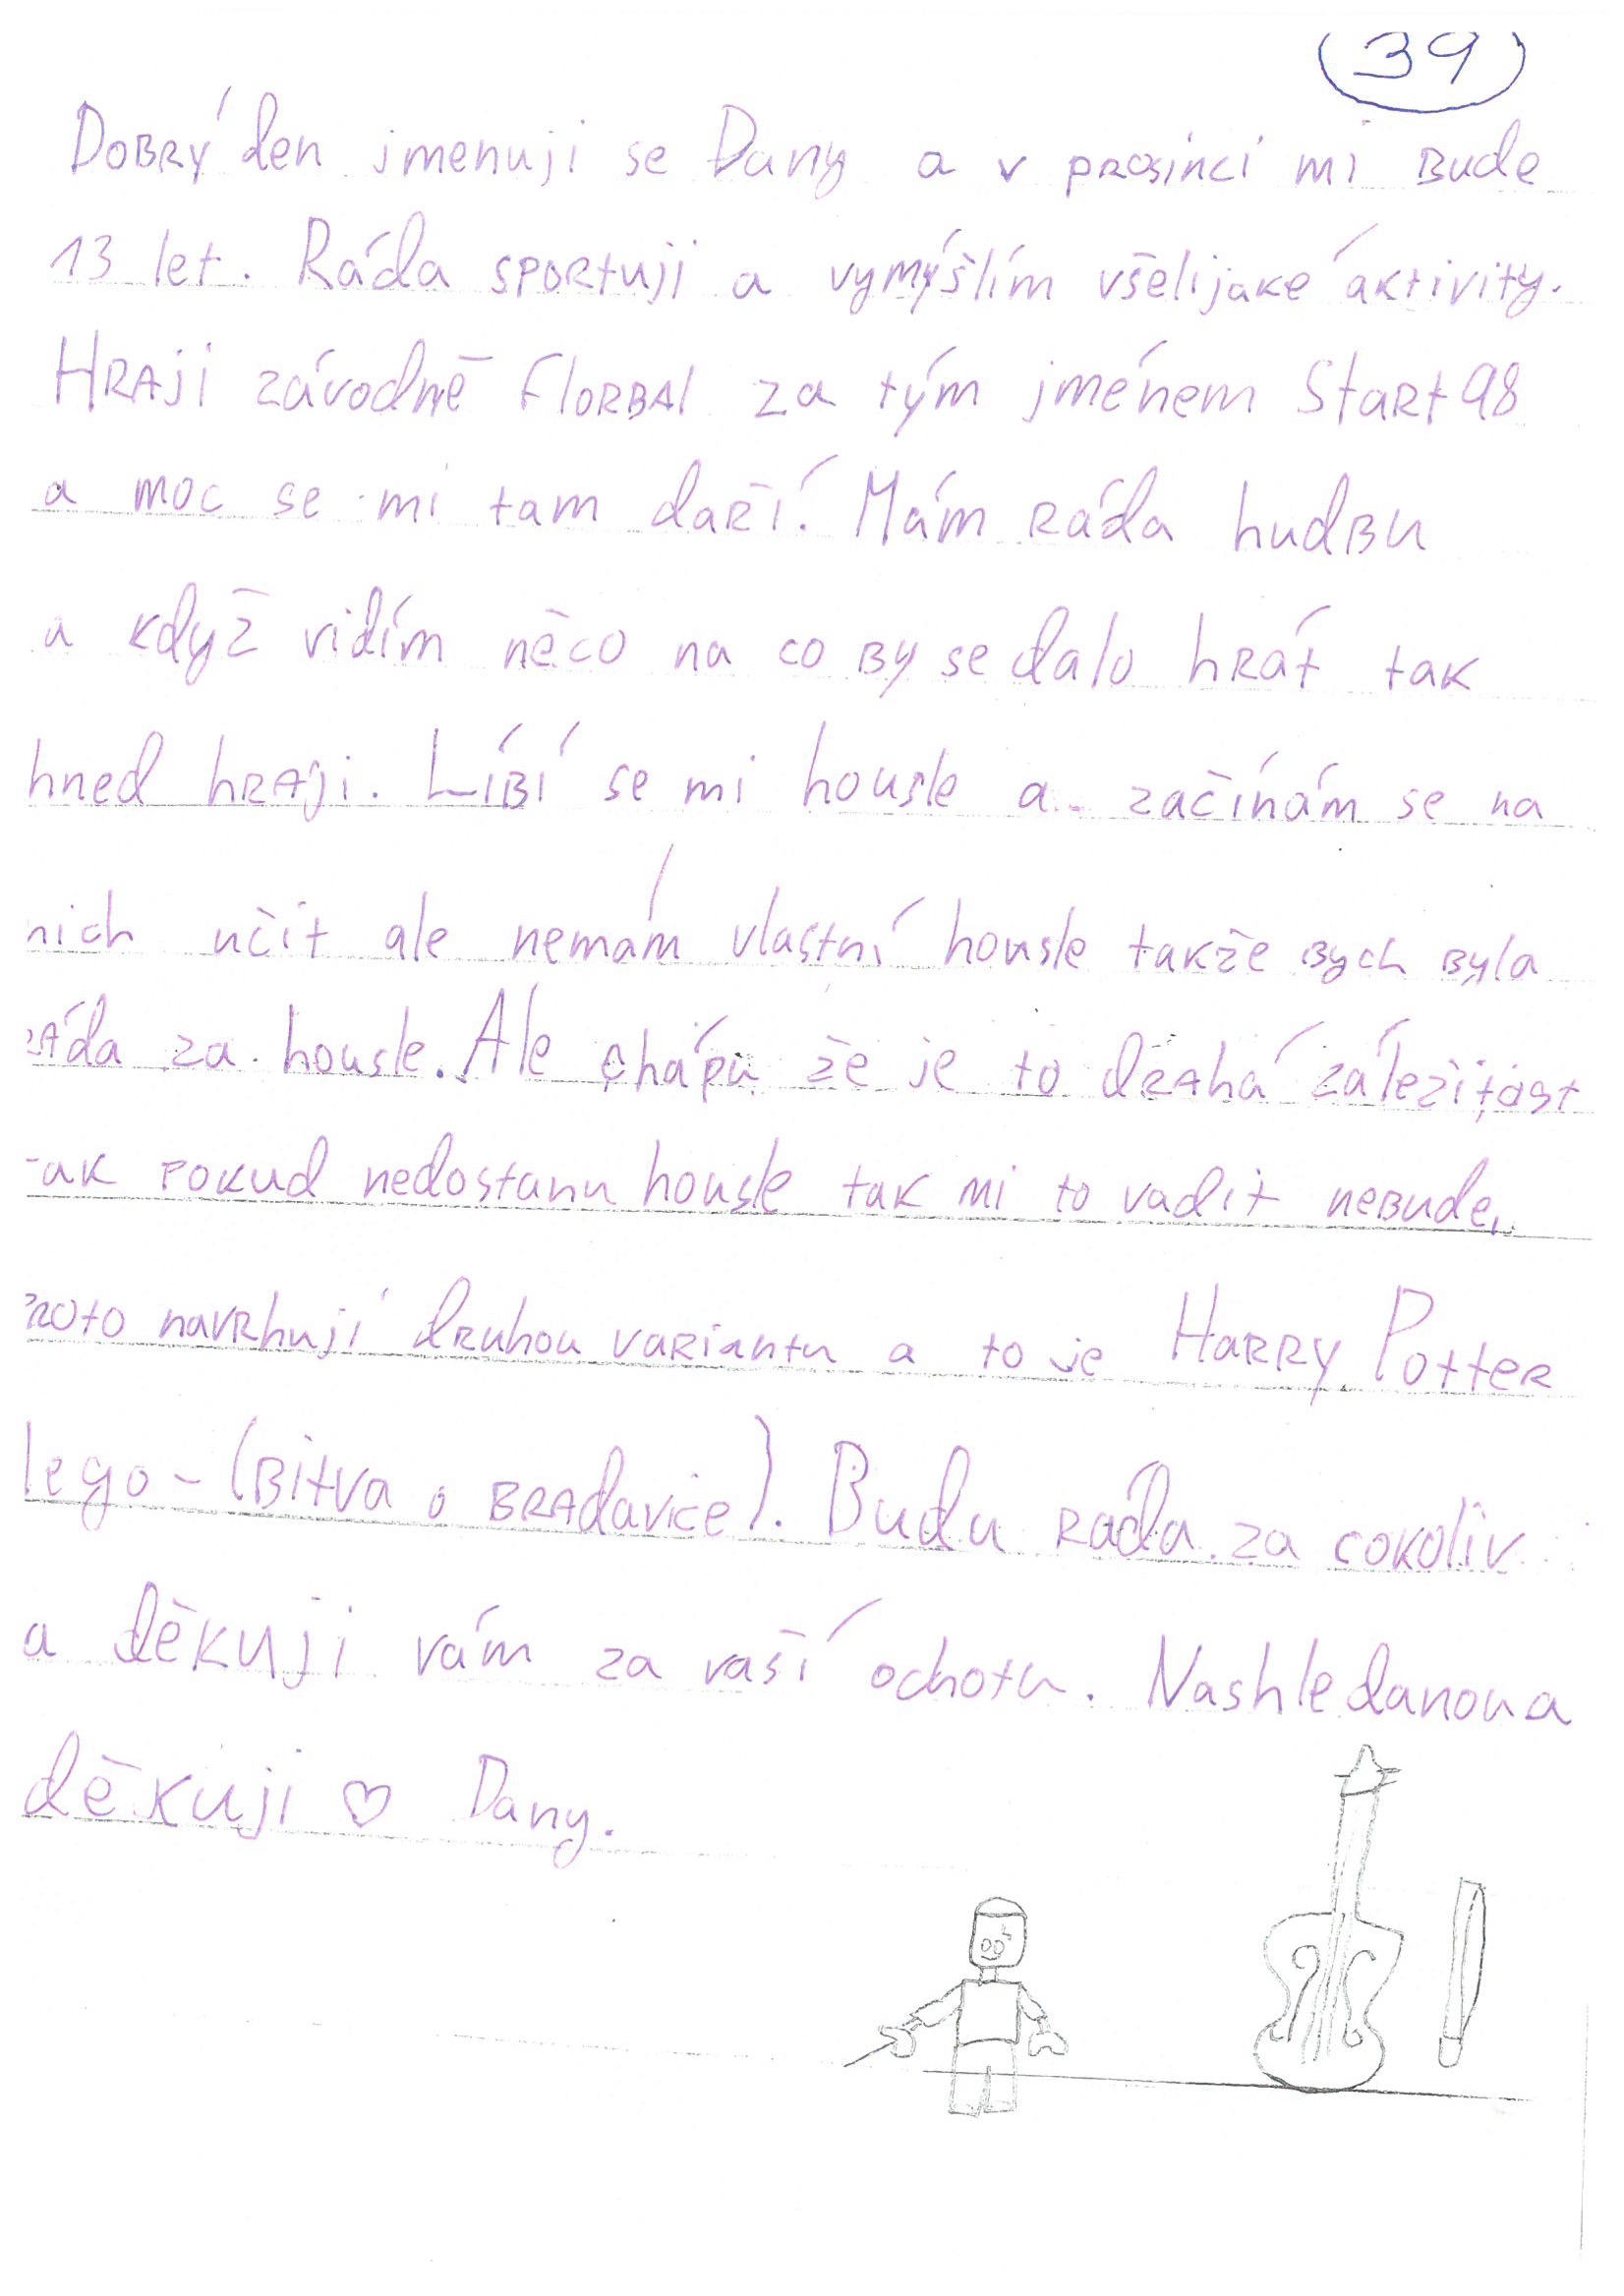 39
Dobrý den jmenuji se Dany a v prosinci mi bude
13 let. Ráda sportuji a vymýšlím všelijaké aktivity.
Hraji závodně florbal za tým jménem Start 98
a moc se mi tam daří. Mám ráda hudbu
a když vidím něco na co by se dalo hrát tak
hned hraji. Líbí se mi housle a začínám se na
nich učit ale nemám vlastní housle takže bych byla
ráda za housle. Ale chápu že je to drahá záležitost
tak pokud nedostanu housle tak mi to vadit nebude.
Proto navrhuji druhou variantu a to je Harry Potter
lego - (Bitva o Bradavice). Budu ráda za cokoliv
a děkuji vám za vaší ochotu. Nashledanou a
děkuji ♡ Dany.